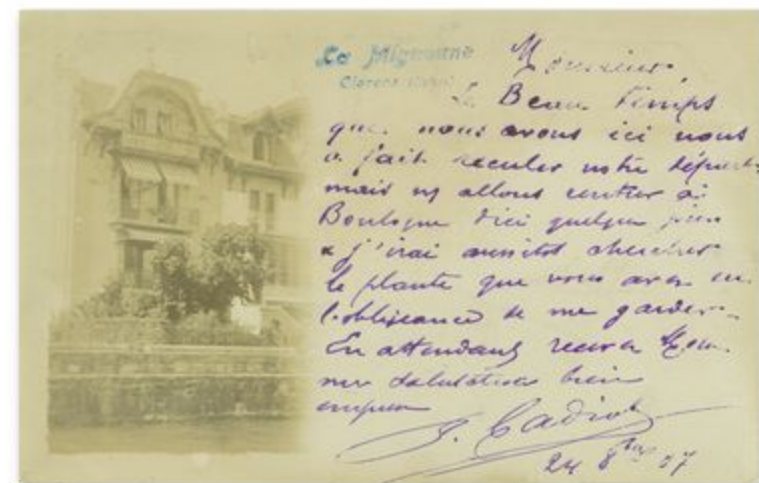 La Mignonne
Clarens
Monsieur,
Le Beau temps
que nous avons ici nous
a fait reculer notre départ
mais ns allons rentrer à
Boulogne d'ici quelques jours
& j'irai aussitôt chercher
la plante que vous avez eu
l'obligeance de me garder.
En attendant recevez Mon.
mes salutations bien
empres
J. Cadiot
24 8bre 07